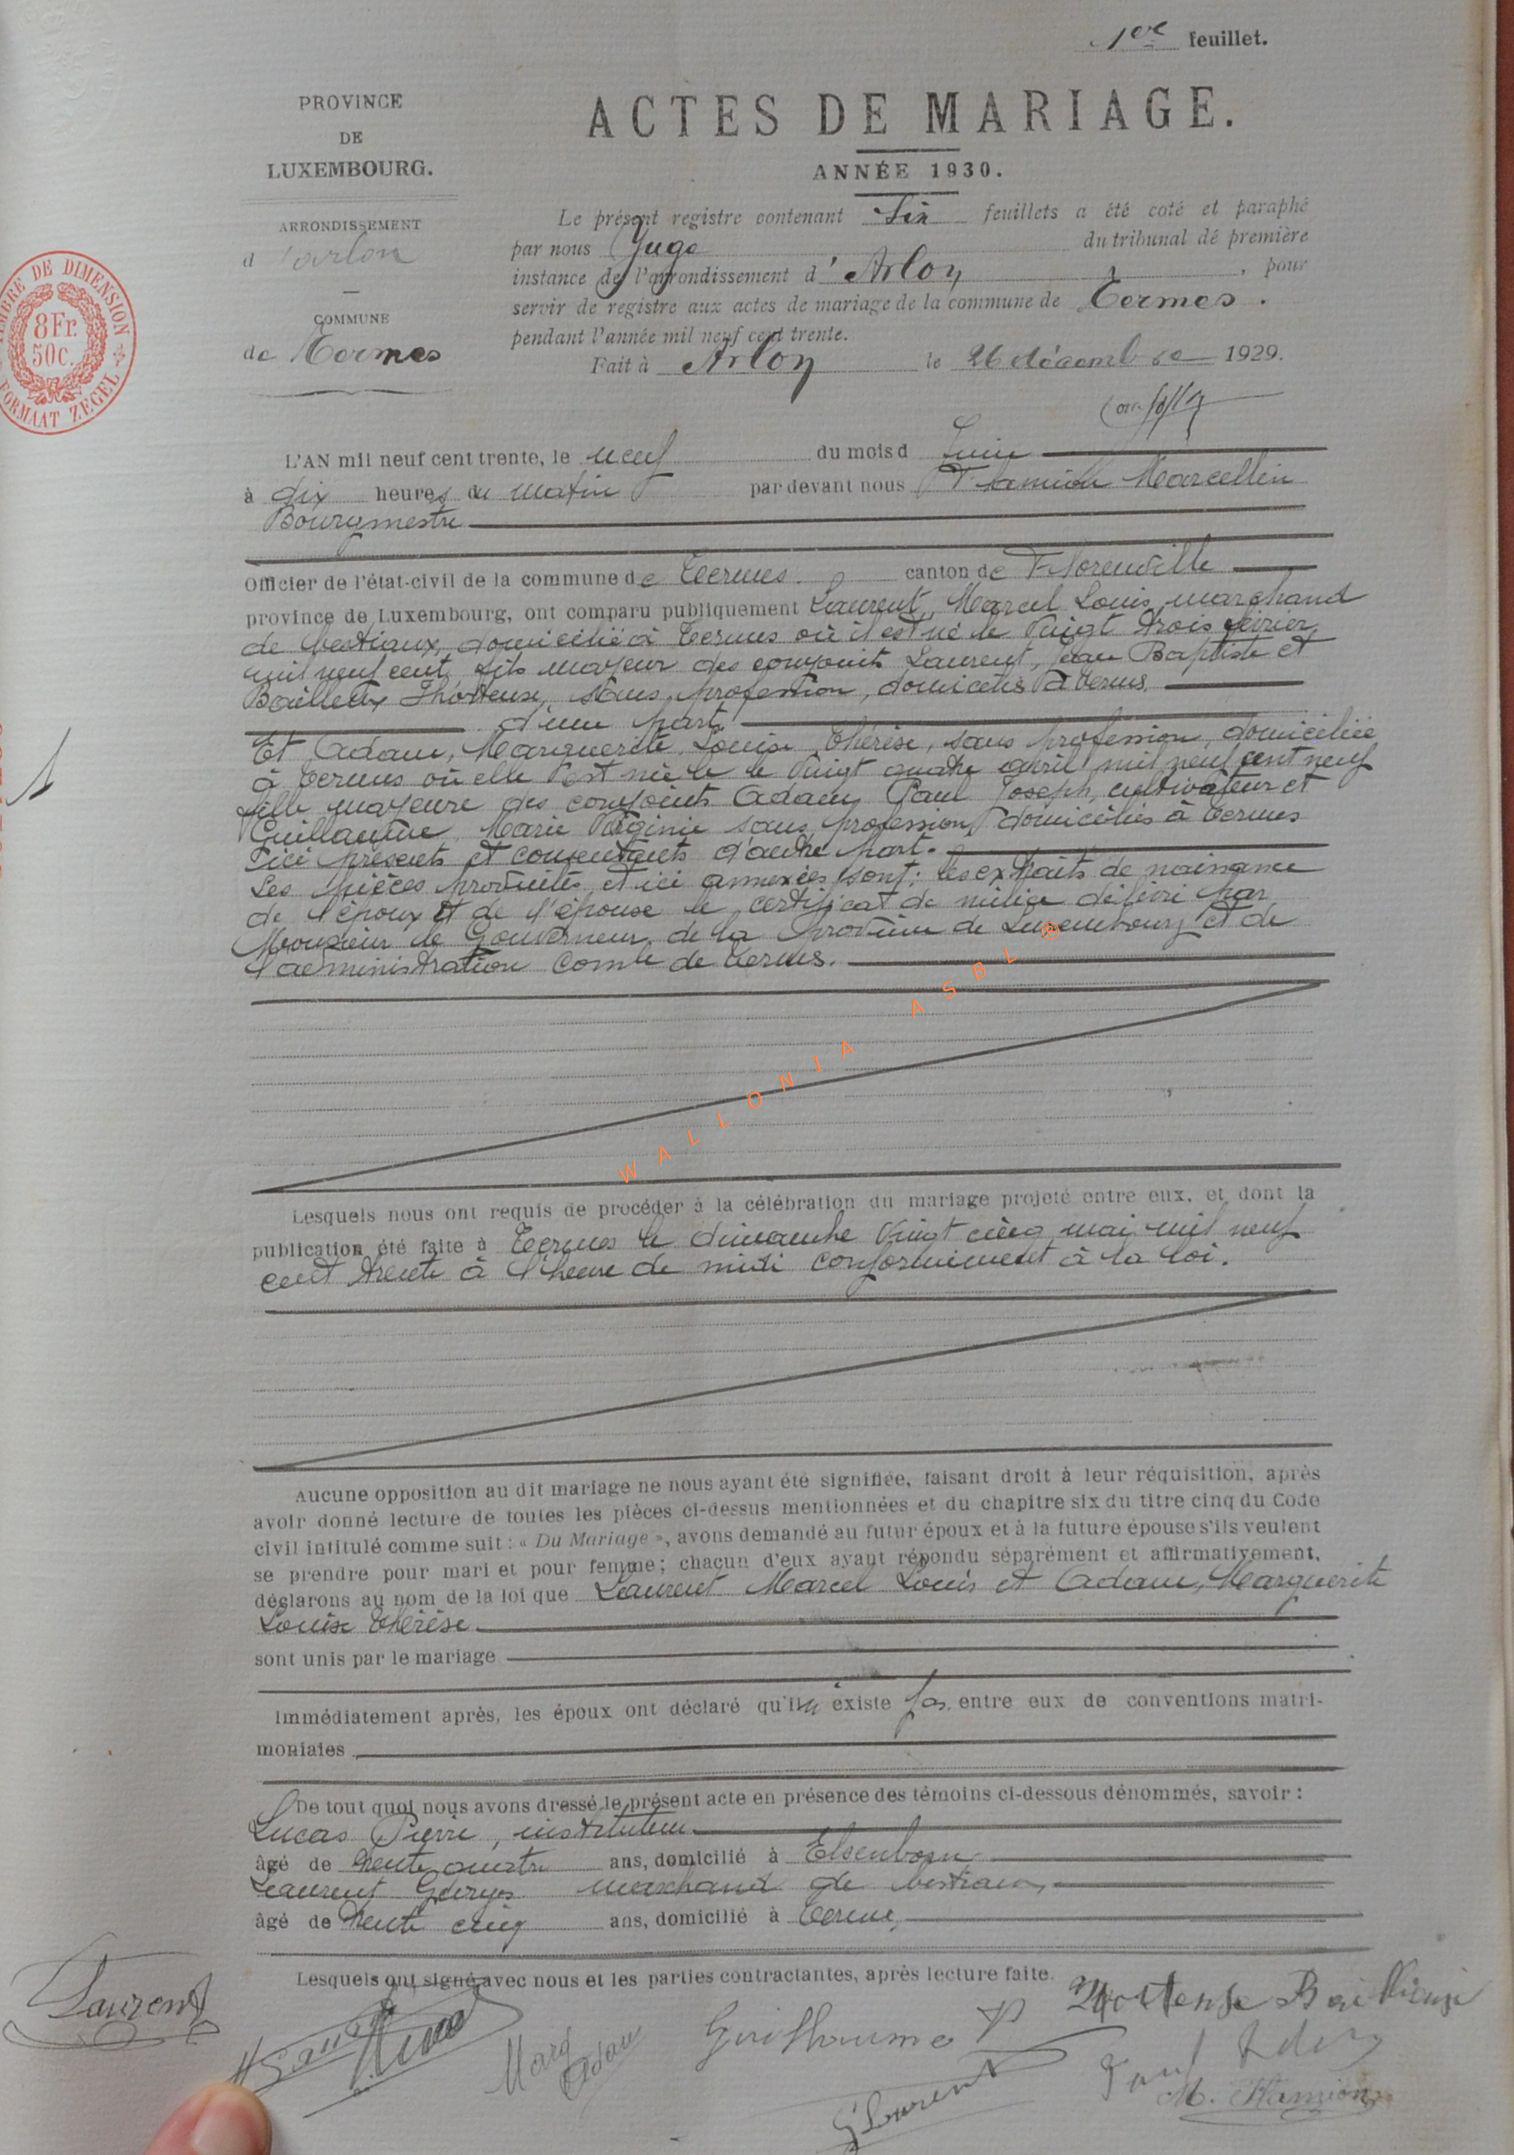 1er feuillet.
PROVINCE
DE
LUXEMBOURG.
ARRONDISSEMENT
d'arlon
COMMUNE
de Termes
TIMBRE DE DIMENSION
8Fr.
50c.
FORMAAT ZEGEL
ACTES DE MARIAGE.
ANNÉE 1930.
Le présent registre contenant Six feuillets a été coté et paraphé
par nous Juge du tribunal de première
instance de l'arrondissement d'Arlon, pour
servir de registre aux actes de mariage de la commune de Termes.
pendant l'année mil neuf cent trente.
Fait à Arlon le 26 décembre 1929.
L'AN mil neuf cent trente, le neuf du mois d Juin
à dix heures du matin par devant nous Flamion Marcellin
Bourgmestre
Officier de l'état-civil de la commune de Termes. canton de Florenville
province de Luxembourg, ont comparu publiquement Laurent, Marcel Louis, marchand
de bestiaux, domicilié à Termes où il est né le vingt trois février
mil neuf cent, fils majeur des conjoints Laurent, Jean Baptiste et
Bailleux Hortense, sans profession, domiciliés à Termes,
d'une part
Et Adam, Marguerite Louise Thérèse, sans profession, domiciliée
à Termes où elle est née le le vingt quatre avril mil neuf cent neuf
fille majeure des conjoints Adam Paul Joseph, cultivateur et
Guillaume Marie Virginie sans profession, domiciliés à Termes
ici présents et consentants d'autre part.
Les pièces produites et ici annexées sont: les extraits de naissance
de l'époux et de l'épouse le certificat de milice délivré par
Monsieur le Gouverneur de la province de Luxembourg et de
l'administration comle de Termes.
WALLONIA ASBL ®
Lesquels nous ont requis de procéder à la célébration du mariage projeté entre eux, et dont la
publication été faite à Termes le dimanche vingt cinq mai mil neuf
cent trente à l'heure de midi conformément à la loi.
Aucune opposition au dit mariage ne nous ayant été signifiée, faisant droit à leur réquisition, après
avoir donné lecture de toutes les pièces ci-dessus mentionnées et du chapitre six du titre cinq du Code
civil intitulé comme suit : « Du Mariage », avons demandé au futur époux et à la future épouse s'ils veulent
se prendre pour mari et pour femme; chacun d'eux ayant répondu séparément et affirmativement,
déclarons au nom de la loi que Laurent Marcel Louis et Adam, Marguerite
Louise Thérèse
sont unis par le mariage
Immédiatement après, les époux ont déclaré qu'il n'existe pas entre eux de conventions matri-
moniales
De tout quoi nous avons dressé le présent acte en présence des témoins ci-dessous dénommés, savoir :
Lucas Pierre, instituteur
âgé de trente quatre ans, domicilié à Elsenborn
Laurent Georges marchand de bestiaux,
âgé de trente cinq ans, domicilié à Termes,
Lesquels ont signé avec nous et les parties contractantes, après lecture faite.
Laurent
Marg Adam
Guillaume V
Hortense Bailleux
G Laurent
Paul Adam
M. Flamion